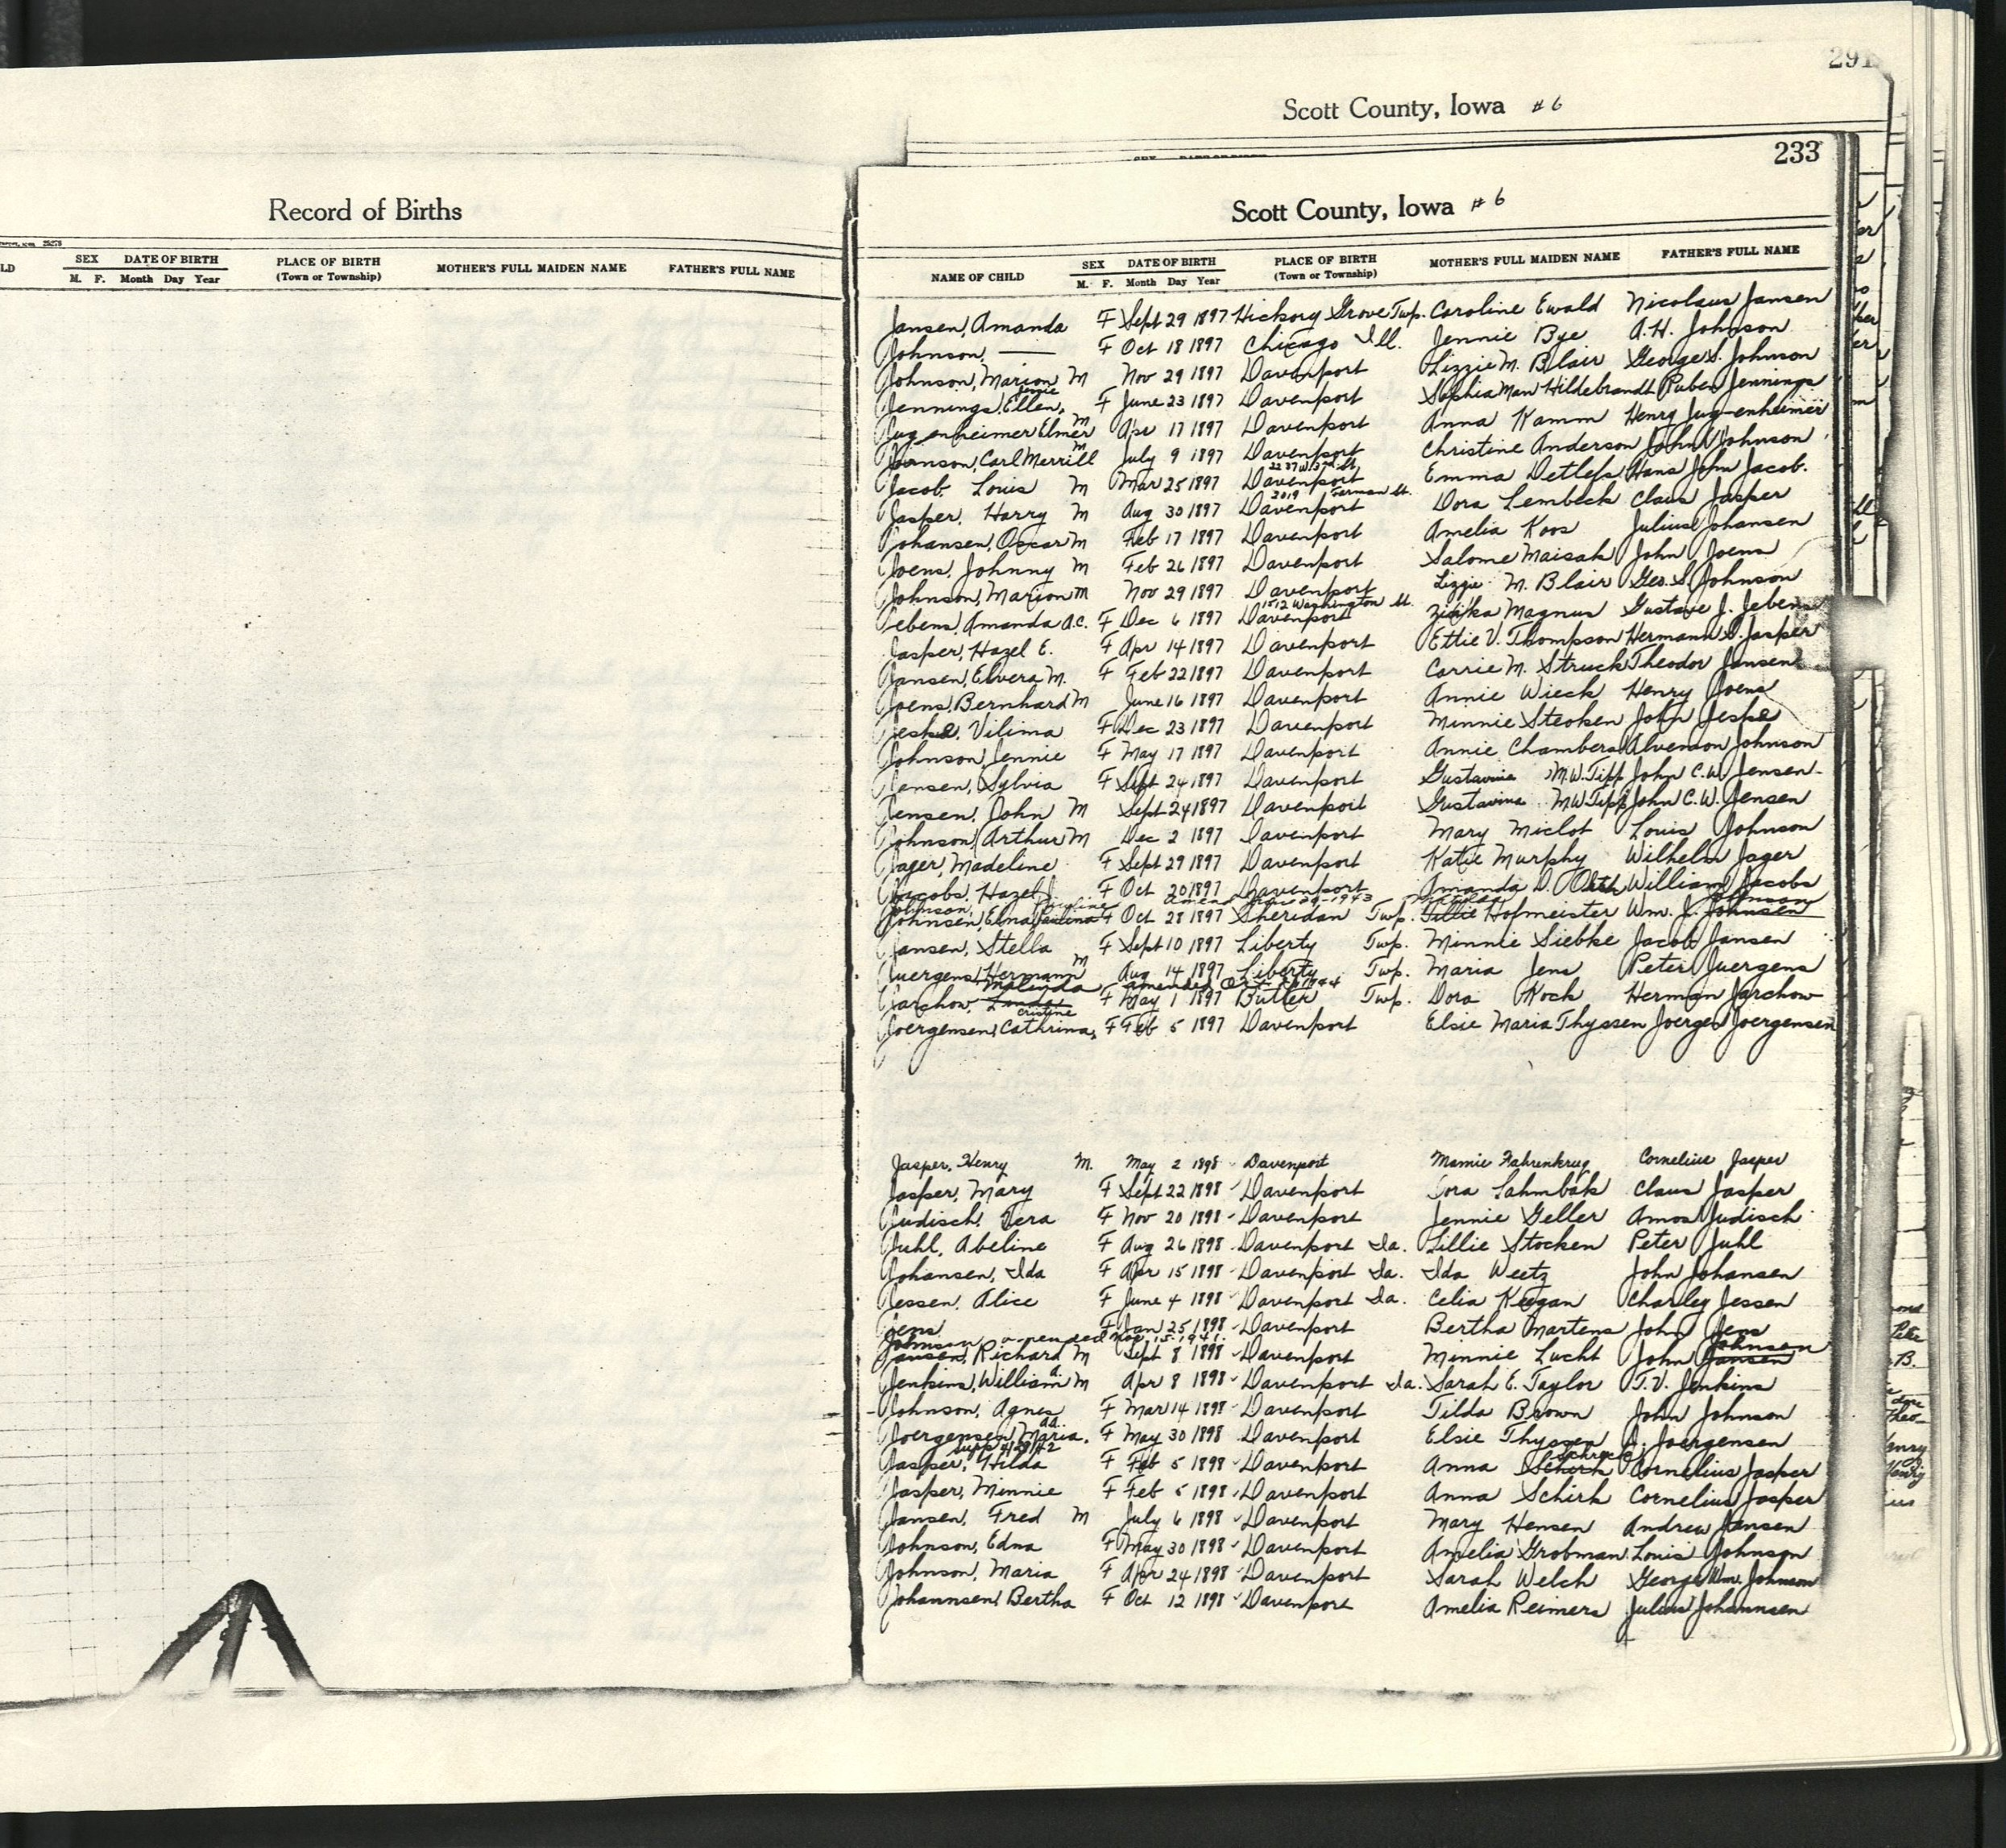 291
Scott County, Iowa # 6
233
Record of Births
Scott County, Iowa # 6
LD SEX M. F. DATE OF BIRTH Month Day Year PLACE OF BIRTH (Town or Township) MOTHER'S FULL MAIDEN NAME FATHER'S FULL NAME
NAME OF CHILD SEX M. F. DATE OF BIRTH Month Day Year PLACE OF BIRTH (Town or Township) MOTHER'S FULL MAIDEN NAME FATHER'S FULL NAME
Jansen, Amanda F Sept 29 1897 Hickory Grove Twp. Caroline Ewald Nicolaus Jansen
Johnson, — F Oct 18 1897 Chicago Ill. Jennie Bye A.H. Johnson
Johnson, Marion M Nov 29 1897 Davenport Lizzie M. Blair George S. Johnson
Jennings, Ellen, Jessie F June 23 1897 Davenport Sophia Mau Hildebrandt Ruben Jennings
Jugenheimer Elmer M Apr 17 1897 Davenport Anna Kamm Henry Jugenheimer
Johnson, Carl Merrill M July 9 1897 Davenport Christine Anderson John Johnson
Jacob, Louis M Mar 25 1897 Davenport Emma Detlefs Hans John Jacob.
Jasper, Harry M Aug 30 1897 Davenport 2019 German St. Dora Lembeck Claus Jasper
Johansen, Oscar M Feb 17 1897 Davenport Amelia Koos Julius Johansen
Joens, Johnny M Feb 26 1897 Davenport Salome Maisak John Joens
Johnson, Marion M Nov 29 1897 Davenport Lizzie M. Blair Geo. S. Johnson
Jebens, Amanda A.C. F Dec 6 1897 Davenport 1512 Washington St. Magnus Gustave J. Jebens
Jasper, Hazel E. F Apr 14 1897 Davenport Ettie V. Thompson Hermann S. Jasper
Jansen, Elvera M. F Feb 22 1897 Davenport Carrie M. Struck Theodor Jansen
Joens, Bernhard M June 16 1897 Davenport Annie Wieck Henry Joens
Jeske, Vilima F Dec 23 1897 Davenport Minnie Steoken John Jeske
Johnson, Jennie F May 17 1897 Davenport Annie Chambers Alvenson Johnson
Jensen, Sylvia F Sept 24 1897 Davenport Gustavine M.W. Tipp John C.W. Jensen
Jensen, John M Sept 24 1897 Davenport Gustavine M W Tipp John C.W. Jensen
Johnson, Arthur M Dec 2 1897 Davenport Mary Miclot Louis Johnson
Jager, Madeline F Sept 29 1897 Davenport Katie Murphy Wilhelm Jager
Jacobs, Hazel J. F Oct 20 1897 Davenport Amanda D. Oltch William Jacobs
Johnson, Pauline Johnson
Johnsen, Elna Paulina F Oct 28 1897 Sheridan Twp. Tillie Hofmeister Wm. J. Johnsen
Jansen, Stella F Sept 10 1897 Liberty Twp. Minnie Siebke Jacob Jansen
Juergens, Hermann M Aug 14 1897 Liberty Twp. Maria Jens Peter Juergens
Malinda amended
Jarchow, Linda F May 1 1897 Butler Twp. Dora Koch Herman Jarchow
Joergensen, Cathrina, Cristine F Feb 5 1897 Davenport Elsie Maria Thyssen Joergen Joergensen
Jasper, Henry M. May 2 1898 Davenport Mamie Fahrenkrug Cornelius Jasper
Jasper, Mary F Sept 22 1898 Davenport Dora Lahmbak Claus Jasper
Judisch, Vera F Nov 20 1898 Davenport Jennie Geller Amos Judisch
Juhl, Abeline F Aug 26 1898 Davenport Ia. Lillie Stocken Peter Juhl
Johansen, Ida F Apr 15 1898 Davenport Ia. Ida Weetz John Johansen
Jessen, Alice F June 4 1898 Davenport Ia. Celia Keegan Charley Jessen
Jens F Jan 25 1898 Davenport Bertha Martens John Jens
Johnson amended Nov. 15, 1941. Johnsen
Jansen, Richard M Sept 8 1898 Davenport Minnie Lucht John Jansen
Jenkins, William A. M Apr 8 1898 Davenport Ia. Sarah E. Taylor T.V. Jenkins
Johnson, Agnes F Mar 14 1898 Davenport Tilda Brown John Johnson
Joergensen, Maria, F May 30 1898 Davenport Elsie Thyssen J. Joergensen
Jasper, Hilda F Feb 5 1898 Davenport Anna Schirk Cornelius Jasper
Jasper, Minnie F Feb 5 1898 Davenport Anna Schirk Cornelius Jasper
Jansen, Fred M July 6 1898 Davenport Mary Hensen Andrew Jansen
Johnson, Edna F May 30 1898 Davenport Amelia Grobman Louis Johnson
Johnson, Maria F Apr 24 1898 Davenport Sarah Welch George Wm. Johnson
Johannsen, Bertha F Oct 12 1898 Davenport Amelia Reimers Julius Johannsen